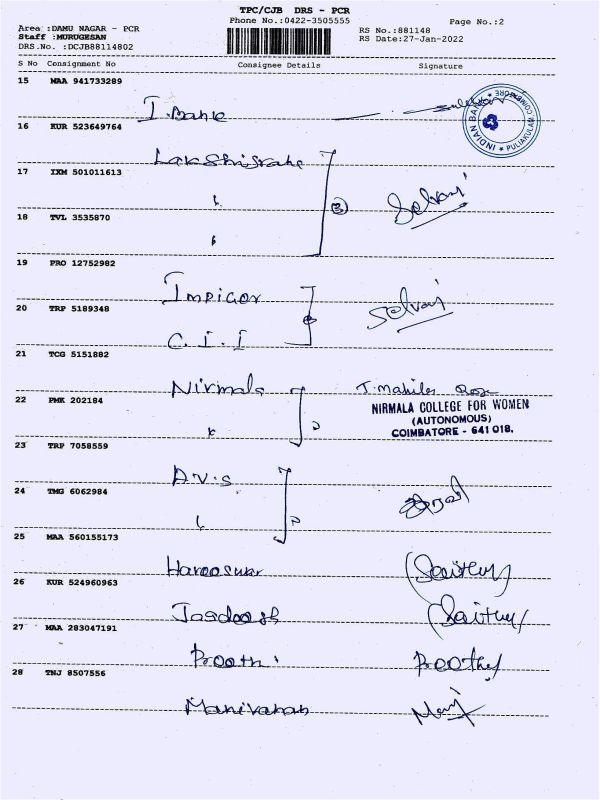 TPC/CJB DRS - PCR
Area :DAMU NAGAR - PCR Phone No.:0422-3505555 Page No.:2
Staff :MURUGESAN RS No.:881148
DRS.No. :DCJB88114802 RS Date:27-Jan-2022
S No Consignment No Consignee Details Signature
15 MAA 941733289
I. Bank
INDIAN BANK * PULIAKULAM, COIMBATORE *
16 KUR 523649764
17 IXM 501011613
3 Selvaj
18 TVL 3535870
19 PRO 12752982
Impiger
20 TRP 5189348
Selvaj
C.I.I
21 TCG 5151882
Nirmala
22 PMK 202184
NIRMALA COLLEGE FOR WOMEN
(AUTONOMOUS)
COIMBATORE - 641 018.
23 TRP 7058559
A.V.S
24 TMG 6062984
25 MAA 560155173
26 KUR 524960963
Jagdeesh
27 MAA 283047191
Preethi
28 TNJ 8507556
Manivanan Mani